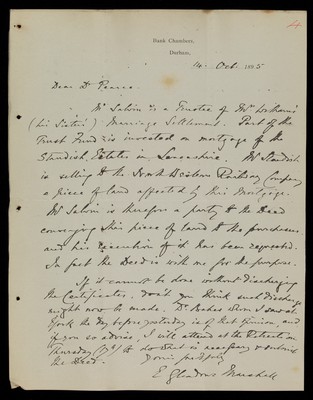 44
Bank Chambers,
Durham,
14 Oct. 1895
Dear Dr Pearce
Mr Salvin is a Trustee of Mrs
(his Sister's) Marriage Settlement. Part of the
Trust Fund is invested on mortgage of the
Standish Estates in Lancashire. Mr Standish
is selling to the North Western Railway Company
a piece of land affected by this Mortgage.
Mr Salvin is therefore a party to the Deed
conveying this piece of land to the purchasers
and his execution of it has been requested.
In fact the Deed is with me for the purpose.
If it cannot be done without discharging
the Certificates, don't you think such discharge
might now be made. Dr whom I saw at
York the day before yesterday is of that opinion, and
if you so advise, I will attend at the Retreat on
Thursday to do what is necessary &
the Deed.
Yours
E Gleadowe Marshall